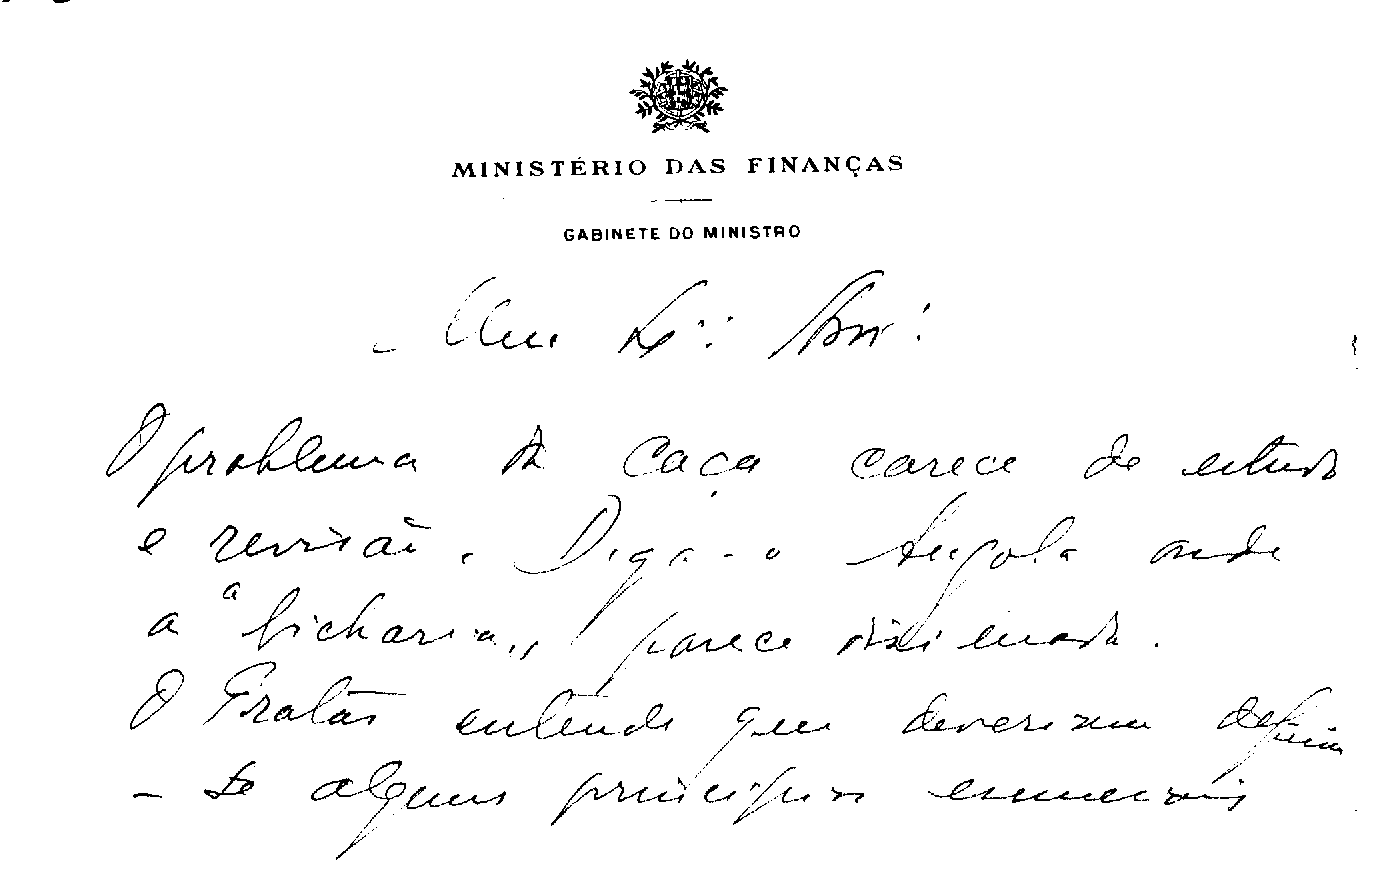 MINISTÉRIO DAS FINANÇAS
GABINETE DO MINISTRO
- Meu Exº. Amº.
O problema da caça carece de estudo
e revisão. Diga-o Angola onde
a "bicharia" parece dizimada.
O Fratão entende que deveriam definir
- se alguns princípios essenciais